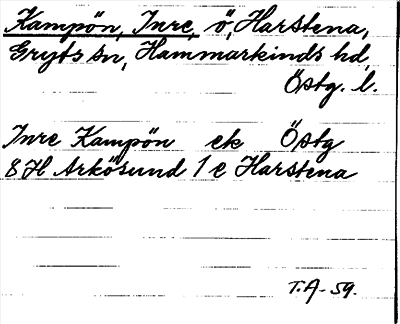 Kampön, Inre, ö, Harstena,
Gryts sn, Hammarkinds hd,
Östg. l.
Inre Kampön ek Östg
8H Arkösund 1 e Harstena
T.A. 59.